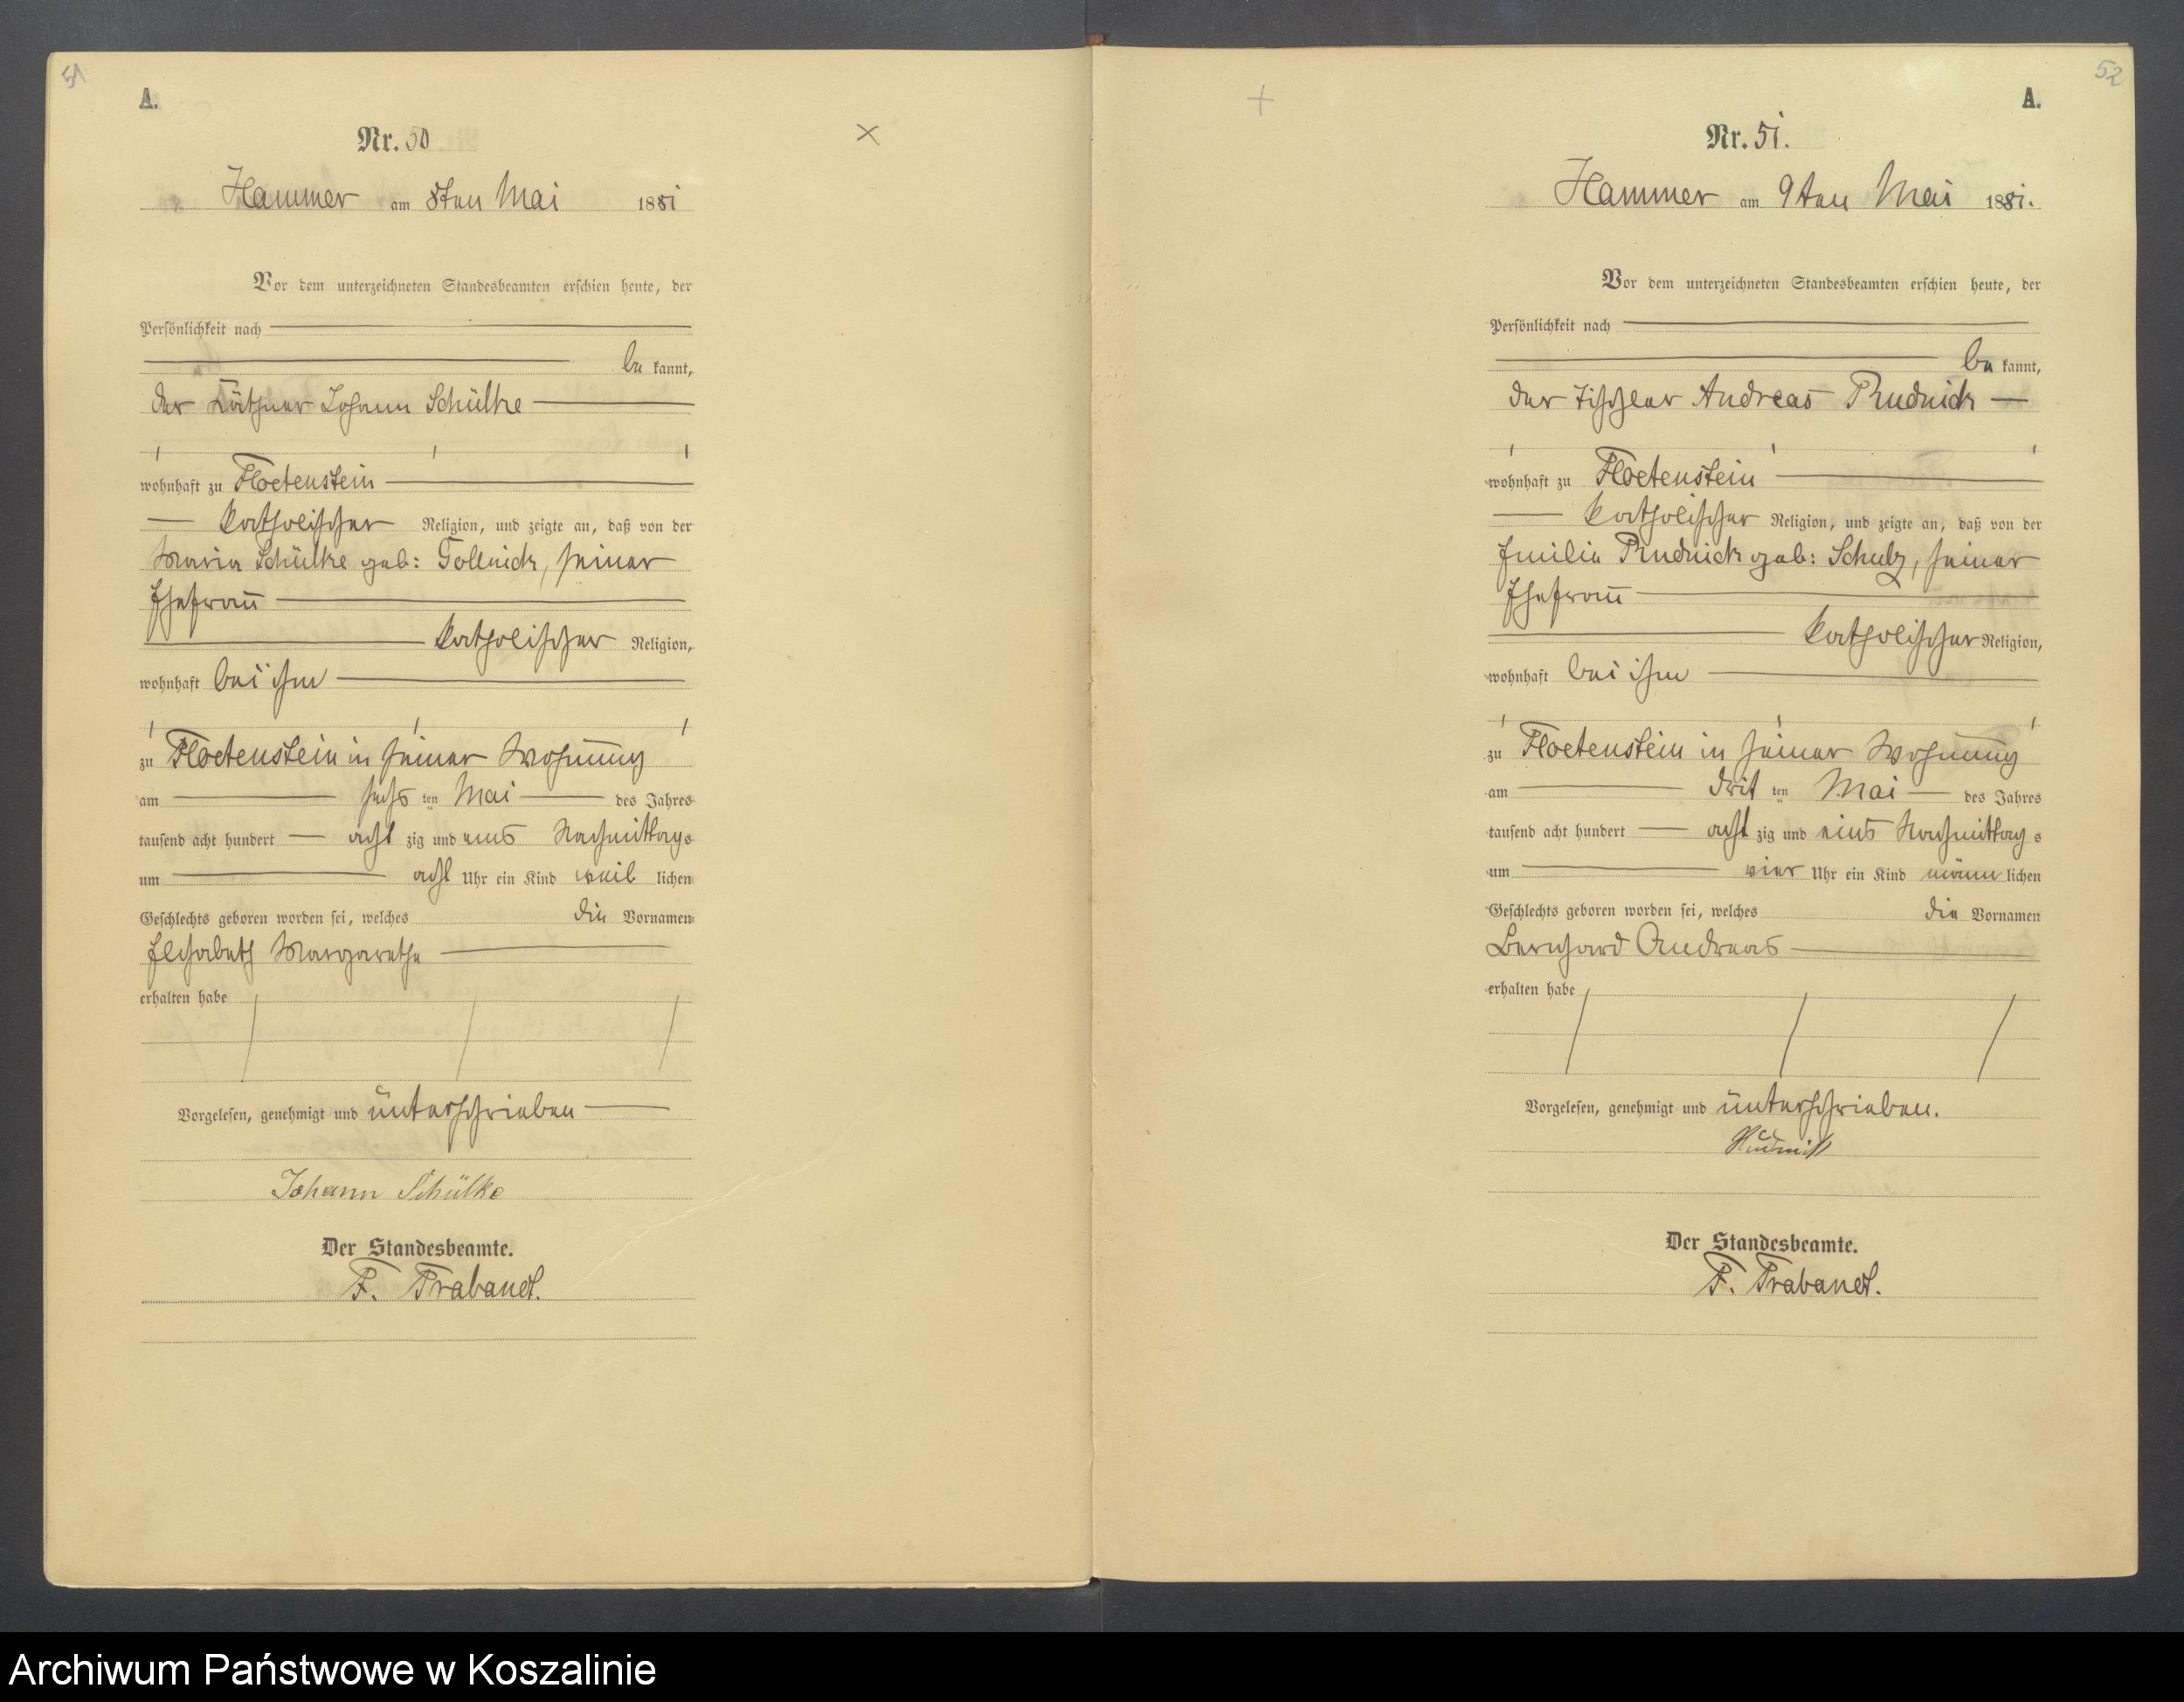 51
A.
Nr. 50
Hammer am 8ten Mai 1881
Vor dem unterzeichneten Standesbeamten erschien heute, der
Persönlichkeit nach
be kannt,
der Käthner Johann Schülke
wohnhaft zu Floetenstein
katholischer Religion, und zeigte an, daß von der
Maria Schülke geb: Gollnick, seiner
Ehefrau
katholischer Religion,
wohnhaft bei ihm
zu Floetenstein in seiner Wohnung
am sechs ten Mai des Jahres
tausend acht hundert acht zig und eins Nachmittags
um acht Uhr ein Kind weib lichen
Geschlechts geboren worden sei, welches die Vornamen
Elisabeth Margarethe
erhalten habe
Vorgelesen, genehmigt und unterschrieben
Johann Schülke
Der Standesbeamte.
F. Trabandt.
52
A.
Nr. 51.
Hammer am 9ten Mai 1881.
Vor dem unterzeichneten Standesbeamten erschien heute, der
Persönlichkeit nach
be kannt,
der Tischler Andreas Rudnick
wohnhaft zu Floetenstein
katholischer Religion, und zeigte an, daß von der
Emilie Rudnick geb: Schulz, seiner
Ehefrau
katholischer Religion,
wohnhaft bei ihm
zu Floetenstein in seiner Wohnung
am drit ten Mai des Jahres
tausend acht hundert acht zig und eins Nachmittag s
um vier Uhr ein Kind männ lichen
Geschlechts geboren worden sei, welches die Vornamen
Bernhard Andreas
erhalten habe
Vorgelesen, genehmigt und unterschrieben.
Rudnick
Der Standesbeamte.
F. Trabandt.
Archiwum Państwowe w Koszalinie